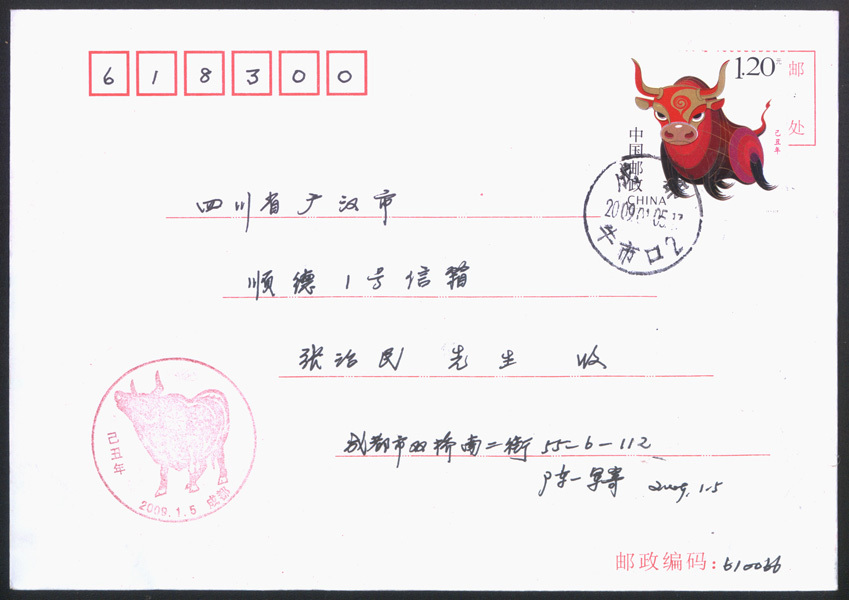 618300
1.20元
邮
处
己丑年
中国邮政
CHINA
2009.01.05
牛市口2
四川省广汉市
顺德1号信箱
张治民 先生 收
己丑年
2009.1.5 成都
成都市双桥南二街55-6-112
陈一军寄 2009.1.5
邮政编码:610066